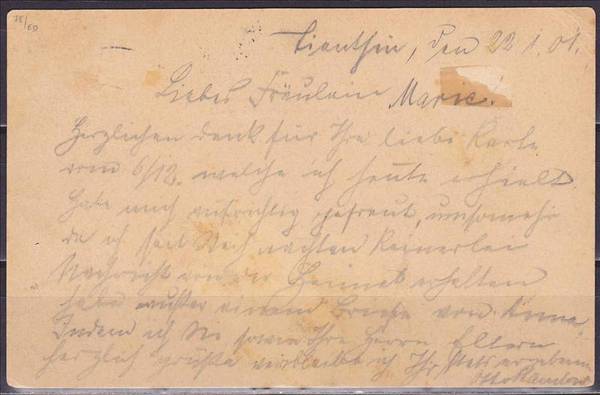 75/60
Tientsin, den 22.1.01.
Liebes Fräulein Marie.
Herzlichen Dank für Ihre liebe Karte
vom 6/12. welche ich heute erhielt.
Habe mich aufrichtig gefreut, umsomehr
da ich seit Weihnachten keinerlei
Nachricht von der Heimat erhalten
habe außer einem Briefe von Anna.
Indem ich Sie sowie Ihre Herrn Eltern
herzlich grüße verbleibe ich Ihr stets ergebener
Otto